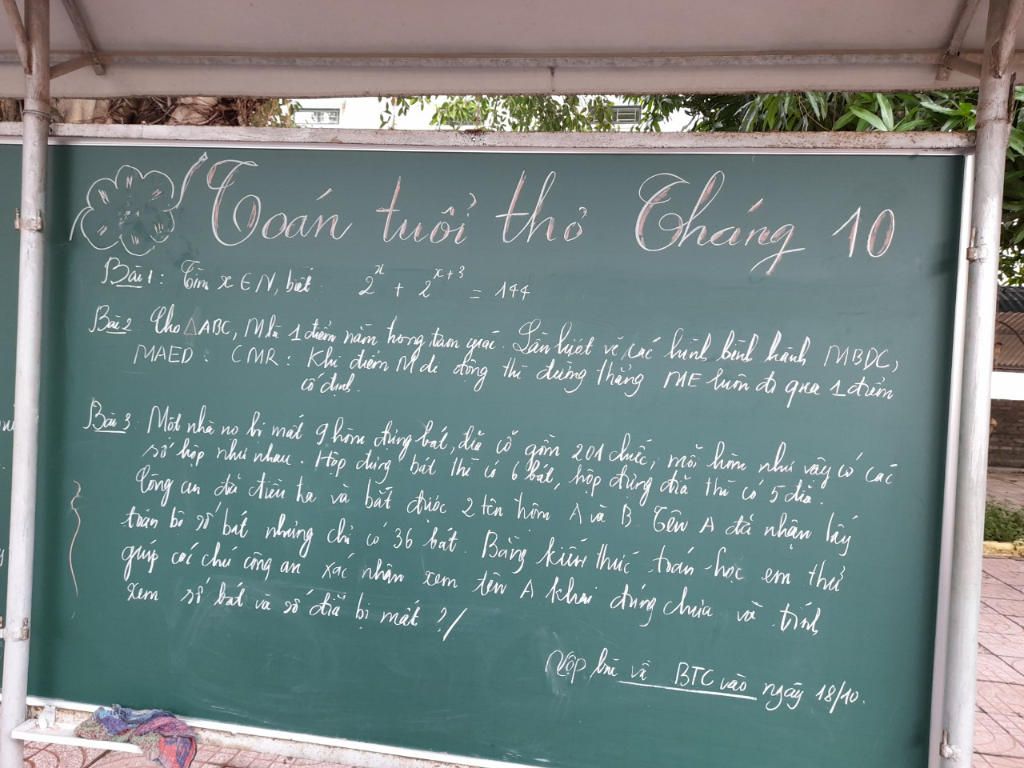 Toán tuổi thơ Tháng 10
Bài 1: Tìm x ∈ N, biết: 2^x + 2^(x+3) = 144
Bài 2 Cho △ABC, M là 1 điểm nằm trong tam giác. Lần lượt vẽ các hình bình hành MBDC,
MAED. CMR: Khi điểm M di động thì đường thẳng ME luôn đi qua 1 điểm
cố định.
Bài 3 Một nhà nọ bị mất 9 hòm đựng bát, đĩa cổ gồm 201 chiếc, mỗi hòm như vậy có các
số hộp như nhau. Hộp đựng bát thì có 6 bát, hộp đựng đĩa thì có 5 đĩa.
Công an đã điều tra và bắt được 2 tên trộm A và B. Tên A đã nhận lấy
toàn bộ số bát nhưng chỉ có 36 bát. Bằng kiến thức toán học em thử
giúp các chú công an xác nhận xem tên A khai đúng chưa và tính
xem số bát và số đĩa bị mất?/
Nộp bài về BTC vào ngày 18/10.